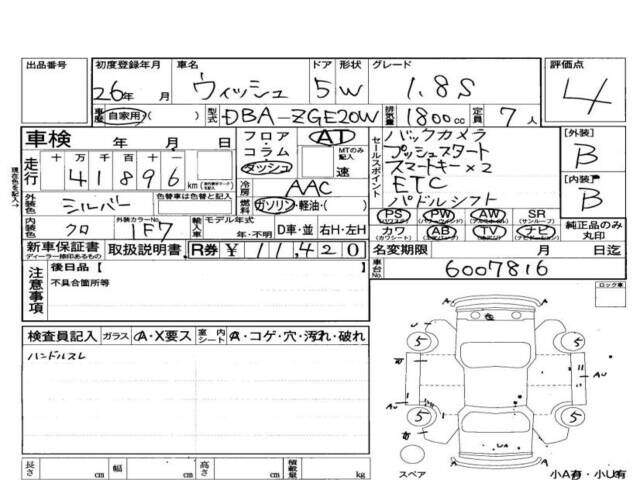 出品番号 初度登録年月 車名 ドア 形状 グレード 評価点
26年 月 ウィッシュ 5 W 1.8S 4
車歴 自家用・( ) 型式 DBA-ZGE20W 排気量 1800cc 定員 7人
車検 年 月 日
フロア・コラム・ダッシュ AT MTのみ記入 速
セールスポイント
バックカメラ
プッシュスタート
スマートキー×2
ETC
パドルシフト
[外装] B
[内装] B
現在色を記入→
走行 十 万 千 百 十 一
41896 km
冷房 AAC
燃料 ガソリン・軽油・( )
外装色 シルバー 色替車は色替と記入
内装色 クロ 外装カラーNo. 1F7 輸入車 モデル年式 年・不明 D車・並 右H・左H
PS (パワステ) PW (パワーウインド) AW SR (サンルーフ)
カワ (カワシート) AB TV ナビ (ナビゲーション)
純正品のみ丸印
新車保証書 ディーラー捺印あるもの 取扱説明書 R券 ¥11,420
名変期限 月 日迄
車台No. 6007816
注意事項
後日品【 】
不具合箇所等
ロック車
検査員記入 ガラス A・X要ス 室内シート A・コゲ・穴・汚れ・破れ
ハンドルスレ
5 5
AU AU
5 5
UA
スペア 小A有・小U有
長さ cm 幅 cm 高さ cm 積載量 kg